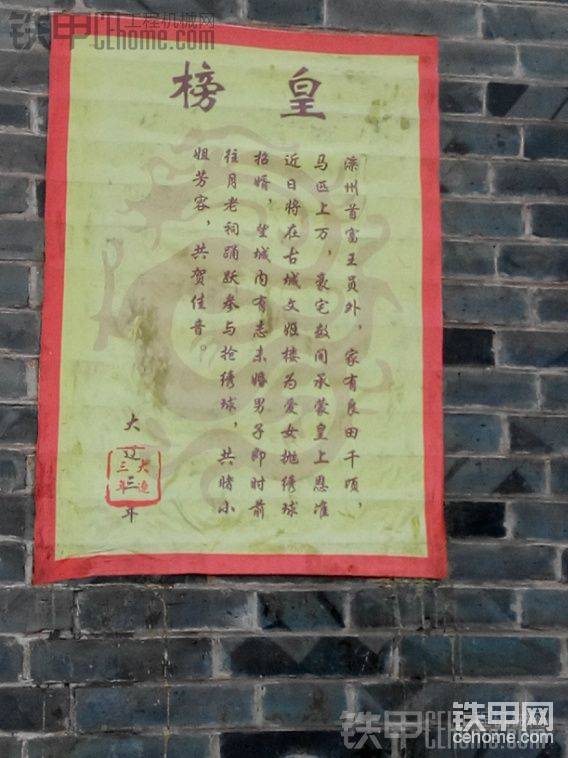 铁甲 工程机械网
CEhome.com
皇榜
滦州首富王员外，家有良田千顷，
马匹上万，豪宅数间承蒙皇上恩准
近日将在古城文姬楼为爱女抛绣球
招婿，望城内有志未婚男子即时前
往月老祠踊跃参与抢绣球，共睹小
姐芳容，共贺佳音。
大辽三年
大辽
三年
铁甲网
cehome.com
铁甲CEhome.com